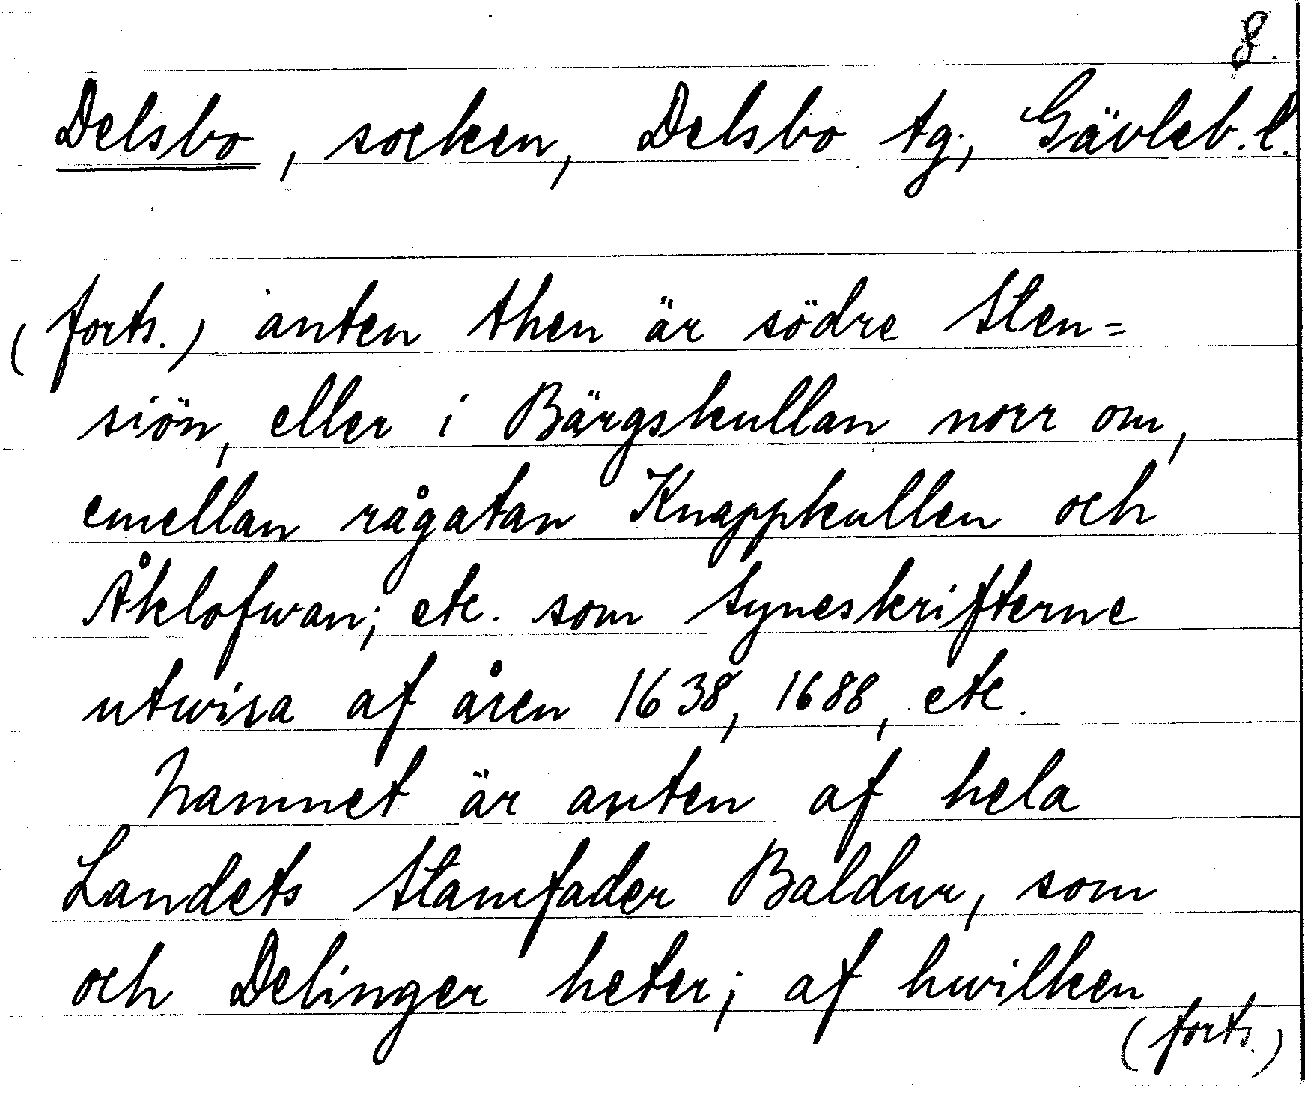 8.
Delsbo, socken, Delsbo tg, Gävleb. l.
(forts.) anten then är södre Sten=
siön, eller i Bärgskullan norr om,
emellan rågatan Knappkullen och
Åklofwan; etc. som Syneskrifterne
utwisa af åren 1638, 1688, etc.
Namnet är anten af hela
Landets Stamfader Baldur, som
och Delinger heter; af hwilken
(forts.)